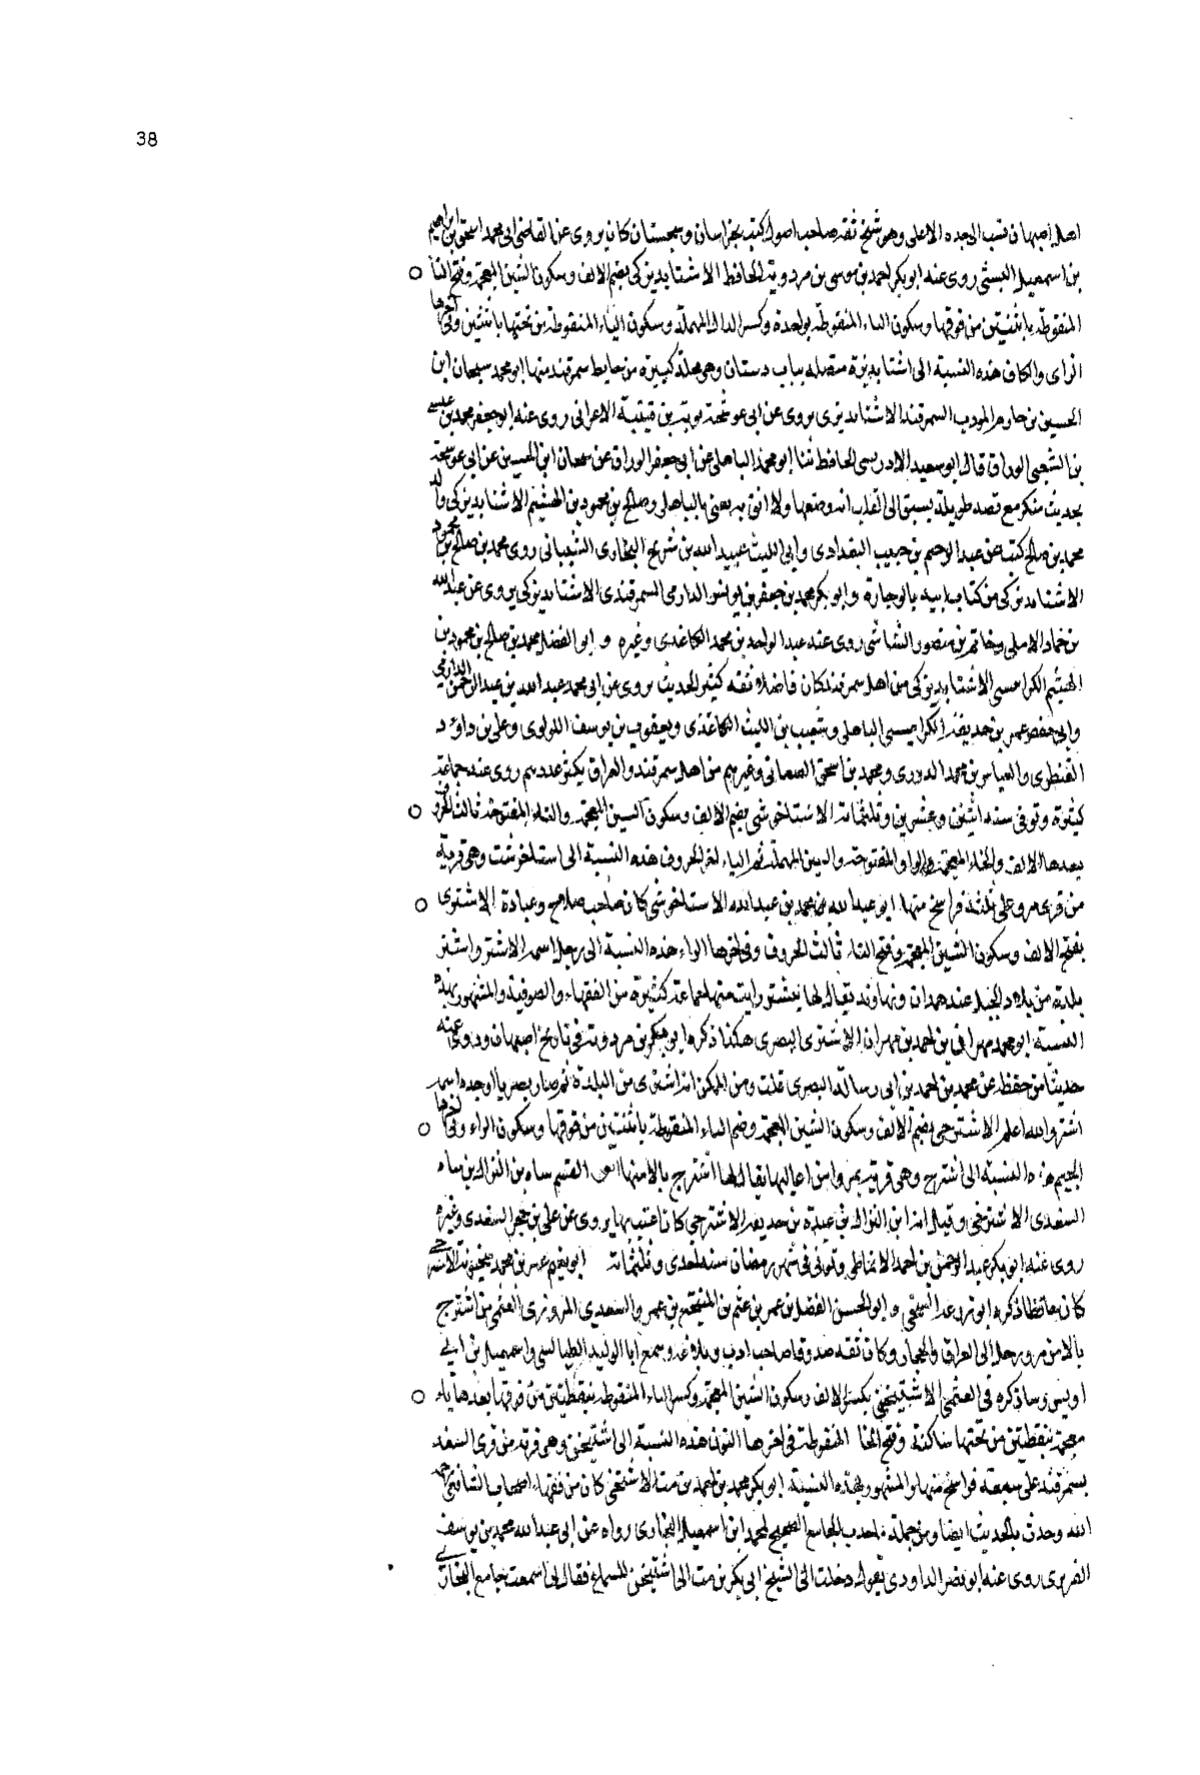 38
اهل اصبهان نسب الى جده الاعلى وهو شيخ ثقه صاحب اصول كتب بخراسان وسجستان كان يروى عن القاضى ابى محمد اسحق بن ابراهيم
بن اسمعيل البستى روى عنه ابو بكر احمد بن موسى بن مردويه الحافظ الاشتابديزكى بضم الالف وسكون الشين المعجمة وفتح التا
المنقوطة باثنتين من فوقها وسكون الباء المنقوطة بواحدة وكسر الدال المهملة وسكون الياء المنقوطة من تحتها باثنتين وفى آخرها
الزاى والكاف هذه النسبة الى اشتابديزة متصله بباب دستان وهى محلة كبيرة من حايط سمرقند منها ابو محمد سبحان ابن
الحسين بن حازم المودب السمرقند الاشتابديزى يروى عن ابى عوسجة توبة بن قتيبة الاعرابى روى عنه ابو جعفر محمد بن عيسى
بن الشعبى الوراق قال ابو سعيد الادريسى الحافظ ثنا ابو محمد الباهلى عن ابى جعفر الوراق عن سبحان ابن الحسين عن ابى عوسجة
بحديث منكر مع قصه طويلة يسبق الى القلب انه وضعها ولا اثق به يعنى بالباهلى وصالح بن محمود بن الهيثم الاشتابديزكى والد
محمد بن صالح كتب عن عبد الرحيم بن حبيب البغدادى وابى الليث عبيد الله بن شريح البخارى الشيبانى روى محمد بن صالح بن محمود
الاشتابديزكى من كتاب ابيه بالوجازة وابو بكر محمد بن جعفر بن يونس الدارمى السمرقندى الاشتابديزكى يروى عن عبد الله
بن حماد الاملى وحاتم بن منصور الشاشى روى عنه عبد الواحد بن محمد الكاغدى وغيره و ابو الفضل محمد بن صالح بن محمود بن
الهيثم الكرابيسى الاشتابديزكى من اهل سمرقند كان فاضلا ثقه كثير الحديث يروى عن ابى محمد عبد الله بن عبد الرحمن الدارمى
وابى حفص عمر بن حذيفة الكرابيسى الباهلى وشعيب بن الليث الكاغذى ويعقوب بن يوسف اللولوى وعلى بن داؤد
القنطرى والعباس بن محمد الدورى ومحمد بن اسحق الصغانى وغيرهم من اهل سمرقند والعراق يكثر عددهم روى عنه جماعة
كثيرة وتوفى سنه اثنتين وعشرين وثلثمائة الاستاخوشى بضم الالف وسكون السين المعجمة والتاء المفتوحة ثالث الحروف
بعدها الالف والخاء المعجمة والواو المفتوحة والسين المهملة ثم الياء اخر الحروف هذه النسبة الى استاخوشت وهى قرية
من قرى مرو على ثلثه فراسخ منها ابو عبد الله بن محمد بن عبد الله الاستاخوشى كان صاحب صلاح وعبادة الاشترى
بفتح الالف وسكون الشين المعجمة وفتح التاء ثالث الحروف وفى اخرها الراء هذه النسبة الى رجل اسمه الاشتر واشتر
بلدة من بلاد الجبل عند همدان ونهاوند يقال لها ليشتر رايت منها جماعة كثيرة من الفقهاء والصوفية والمشهور بهذه
النسبة ابو محمد مهران بن احمد بن مهران الاشترى البصرى هكذا ذكره ابو بكر بن مردويه فى تاريخ اصبهان وروى عنه
حديثا من حفظه عن محمد بن احمد بن ابى رسالة البصرى قلت ومن الممكن انه اشترى من البلدة ثم صار بصريا او جده اسمه
اشتر والله اعلم الاشترجى بضم الالف وسكون الشين المعجمة وضم التاء المنقوطة باثنتين من فوقها وسكون الراء وفى اخرها
الجيم هذه النسبة الى اشترج وهى قرية بمرو من اعاليها يقال لها اشترج بالا منها ابو القسم ساه بن النزال بن ساه
السعدى الاشترجى وقيل انه ابن النزال بن عبدة بن حذيفة الاشترجى كان اعتبها يروى عن على بن حجر السعدى وغيره
روى عنه ابو بكر عبد الرحمن بن احمد الانماطى وتوفى فى شهر رمضان سنه احدى وثلثمائة ابو نعيم عمر بن محمد الاشترجى
كان حافظا ذكره ابو زرعة السنجى وابو الحسن الفضل بن عمير بن عثم بن المنتجع بن عمرو السعدى المروزى العثمى من اشترج
بالا من مرو رحل الى العراق والحجاز وكان ثقه صدوقا صاحب ادب وبلاغه وسمع ابا الوليد الطيالسى واسمعيل بن ابى
اويس وساذكره فى العثمى الاشتيخنى بكسر الالف وسكون الشين المعجمة وكسر التاء المنقوطة بنقطتين من فوقها بعدها ياء
معجمة بنقطتين من تحتها ساكنة وفتح الخا المنقوطة فى اخرها النون هذه النسبة الى اشتيخن وهى قرية من قرى السغد
بسمرقند على سبعة فراسخ منها والمشهور بهذه النسبة ابو بكر محمد بن احمد بن مت الاشتيخنى كان من فقهاء اصحاب الشافعى رحمه
الله وحدث بالحديث ايضا ومن جملة ما حدث الجامع الصحيح لمحمد ابن اسمعيل البخارى رواه عن ابى عبد الله محمد بن يوسف
الفربرى روى عنه ابو نصر الداودى يقول دخلت الى الشيخ ابى بكر بن مت الى اشتيخن للسماع فقال لى اسمعت جامع البخارى